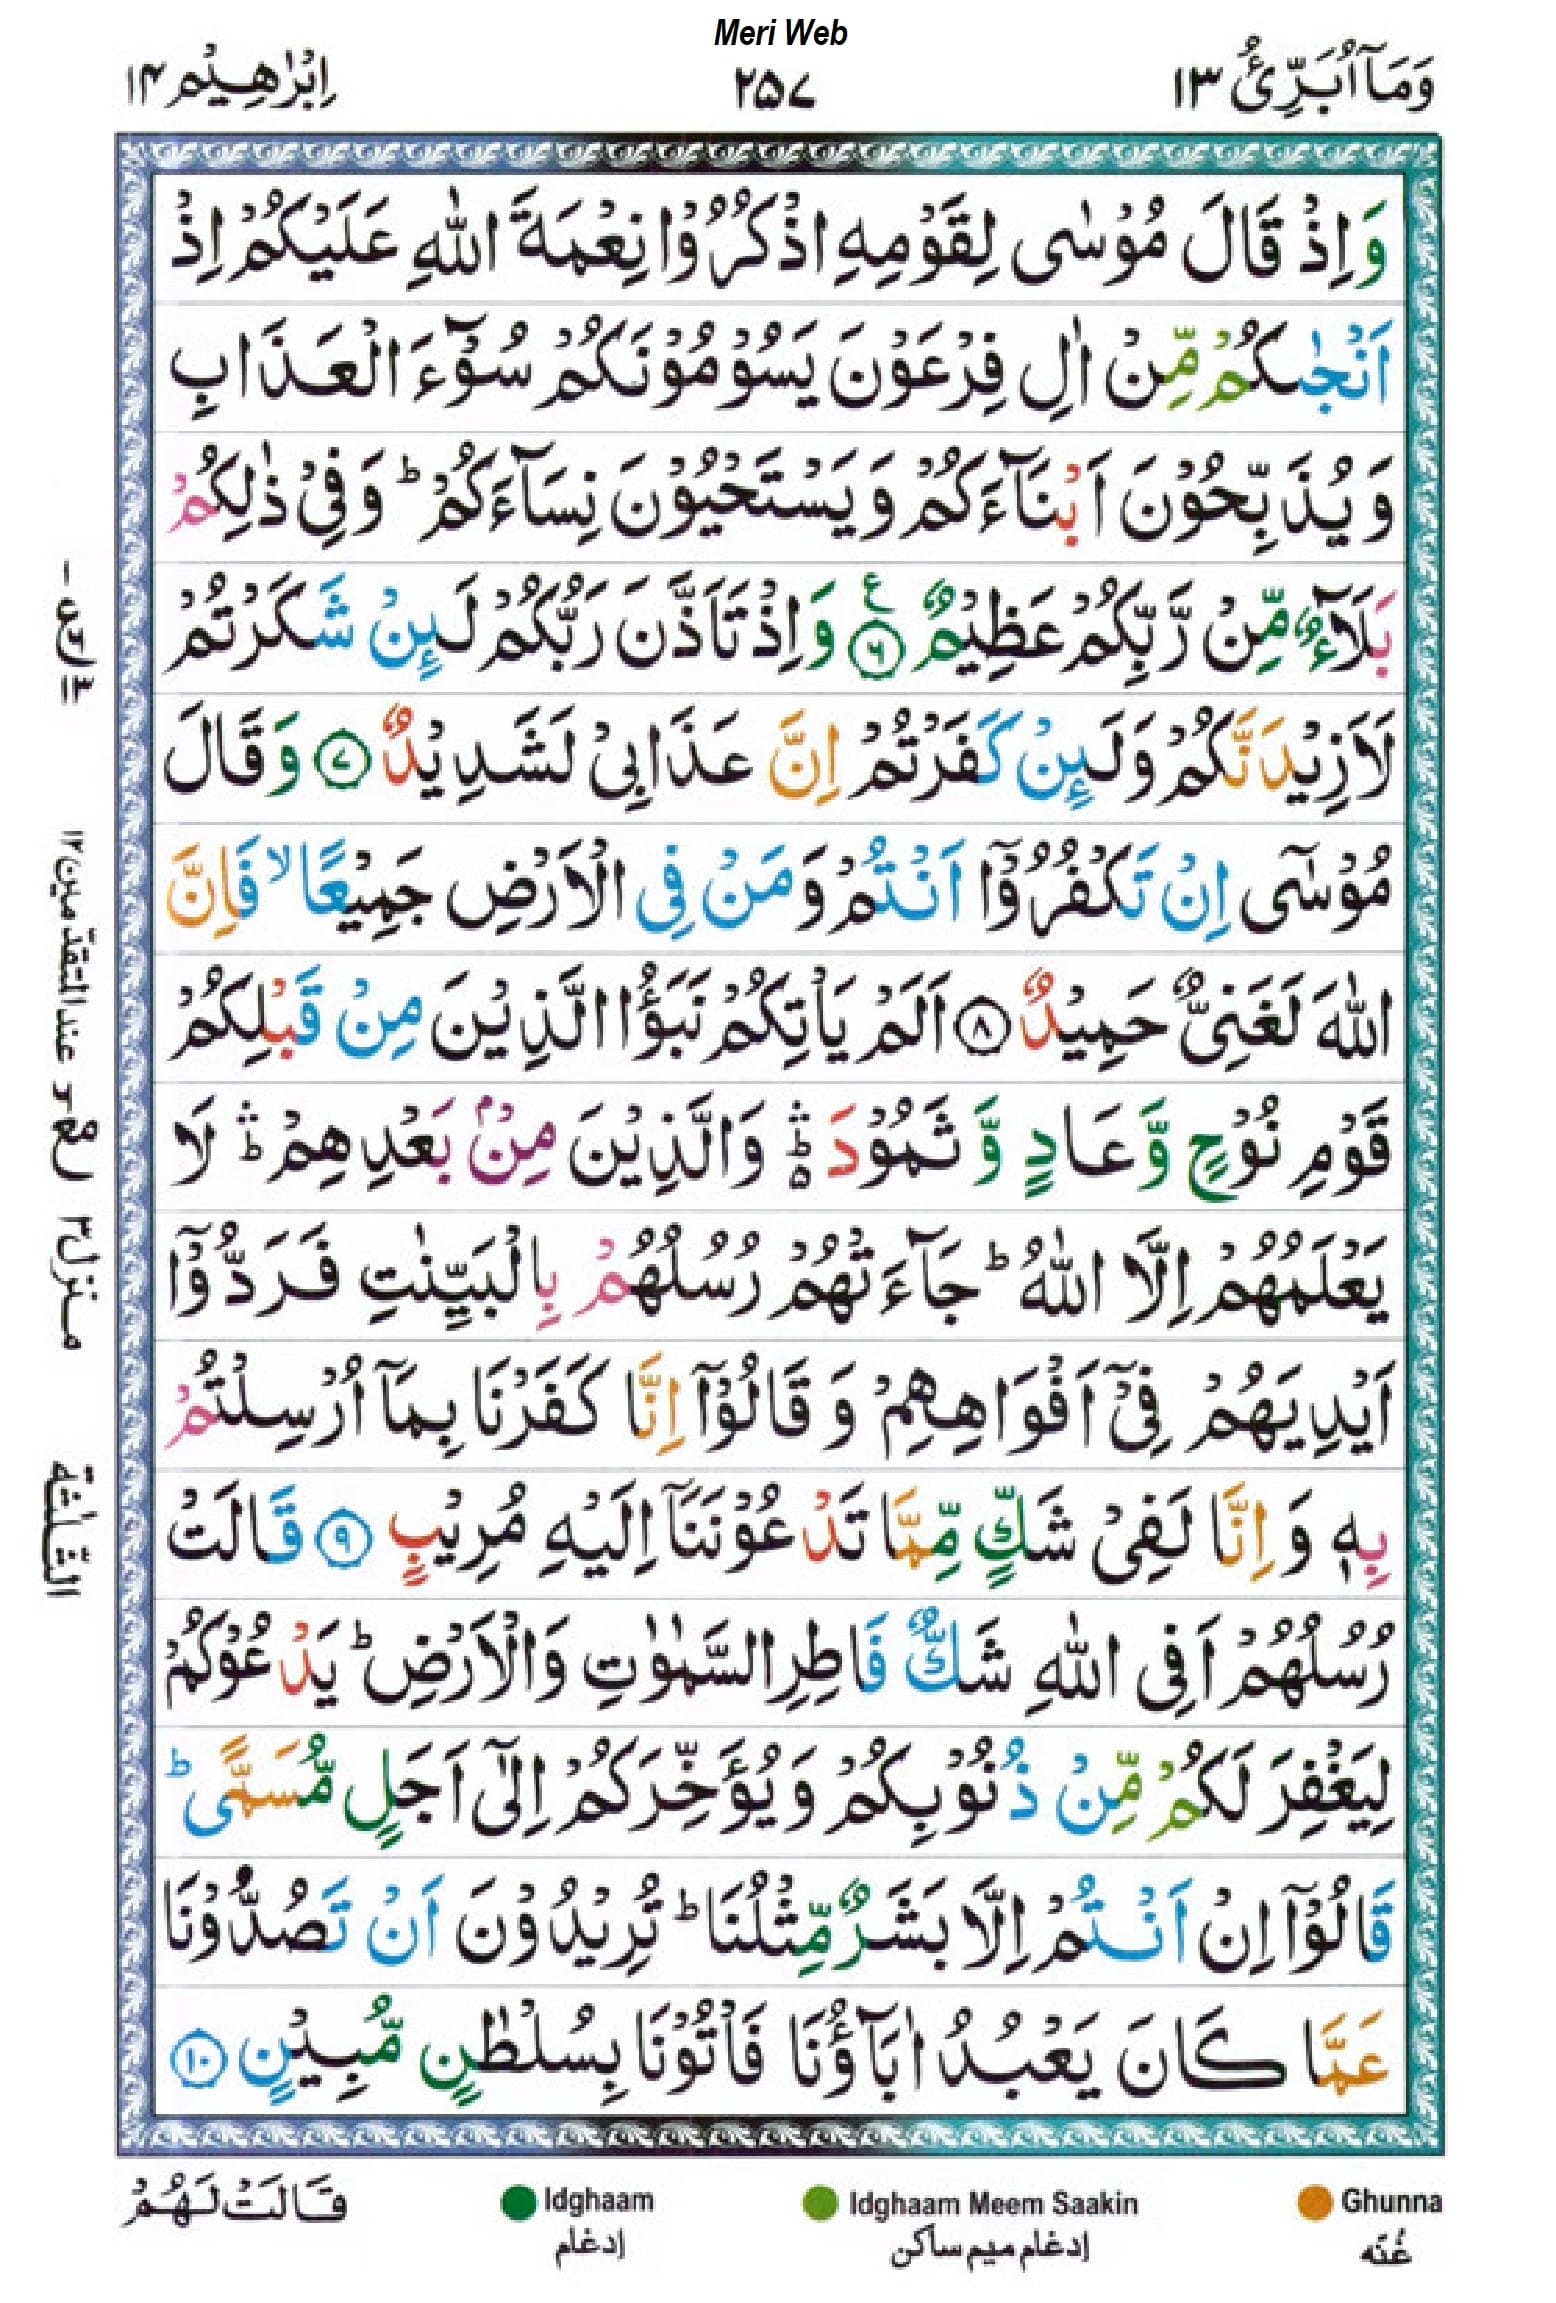 Meri Web
وَمَآ اُبَرِّئُ ١٣ ٢٥٧ اِبْرٰهِيْم ١٤
وَاِذْ قَالَ مُوْسٰى لِقَوْمِهِ اذْكُرُوْا نِعْمَةَ اللّٰهِ عَلَيْكُمْ اِذْ
اَنْجٰىكُمْ مِّنْ اٰلِ فِرْعَوْنَ يَسُوْمُوْنَكُمْ سُوْٓءَ الْعَذَابِ
وَيُذَبِّحُوْنَ اَبْنَآءَكُمْ وَيَسْتَحْيُوْنَ نِسَآءَكُمْ ؕ وَفِيْ ذٰلِكُمْ
بَلَآءٌ مِّنْ رَّبِّكُمْ عَظِيْمٌ ﴿٦﴾ ع وَاِذْ تَاَذَّنَ رَبُّكُمْ لَئِنْ شَكَرْتُمْ
لَاَزِيْدَنَّكُمْ وَلَئِنْ كَفَرْتُمْ اِنَّ عَذَابِيْ لَشَدِيْدٌ ﴿٧﴾ وَقَالَ
مُوْسٰٓى اِنْ تَكْفُرُوْٓا اَنْتُمْ وَمَنْ فِى الْاَرْضِ جَمِيْعًا ۙ فَاِنَّ
اللّٰهَ لَغَنِيٌّ حَمِيْدٌ ﴿٨﴾ اَلَمْ يَاْتِكُمْ نَبَؤُا الَّذِيْنَ مِنْ قَبْلِكُمْ
قَوْمِ نُوْحٍ وَّعَادٍ وَّثَمُوْدَ ۛؕ وَالَّذِيْنَ مِنْۢ بَعْدِهِمْ ۛؕ لَا
يَعْلَمُهُمْ اِلَّا اللّٰهُ ؕ جَآءَتْهُمْ رُسُلُهُمْ بِالْبَيِّنٰتِ فَرَدُّوْٓا
اَيْدِيَهُمْ فِيْٓ اَفْوَاهِهِمْ وَقَالُوْٓا اِنَّا كَفَرْنَا بِمَآ اُرْسِلْتُمْ
بِهٖ وَاِنَّا لَفِيْ شَكٍّ مِّمَّا تَدْعُوْنَنَآ اِلَيْهِ مُرِيْبٍ ﴿٩﴾ قَالَتْ
رُسُلُهُمْ اَفِى اللّٰهِ شَكٌّ فَاطِرِ السَّمٰوٰتِ وَالْاَرْضِ ؕ يَدْعُوْكُمْ
لِيَغْفِرَ لَكُمْ مِّنْ ذُنُوْبِكُمْ وَيُؤَخِّرَكُمْ اِلٰٓى اَجَلٍ مُّسَمًّى ؕ
قَالُوْٓا اِنْ اَنْتُمْ اِلَّا بَشَرٌ مِّثْلُنَا ؕ تُرِيْدُوْنَ اَنْ تَصُدُّوْنَا
عَمَّا كَانَ يَعْبُدُ اٰبَآؤُنَا فَاْتُوْنَا بِسُلْطٰنٍ مُّبِيْنٍ ﴿١٠﴾
عند المتقدّمين ١٢
منزل ٣
الثلٰثة
قَالَتْ لَهُمْ
Idghaam
إدغام
Idghaam Meem Saakin
إدغام میم ساکن
Ghunna
غُنّه